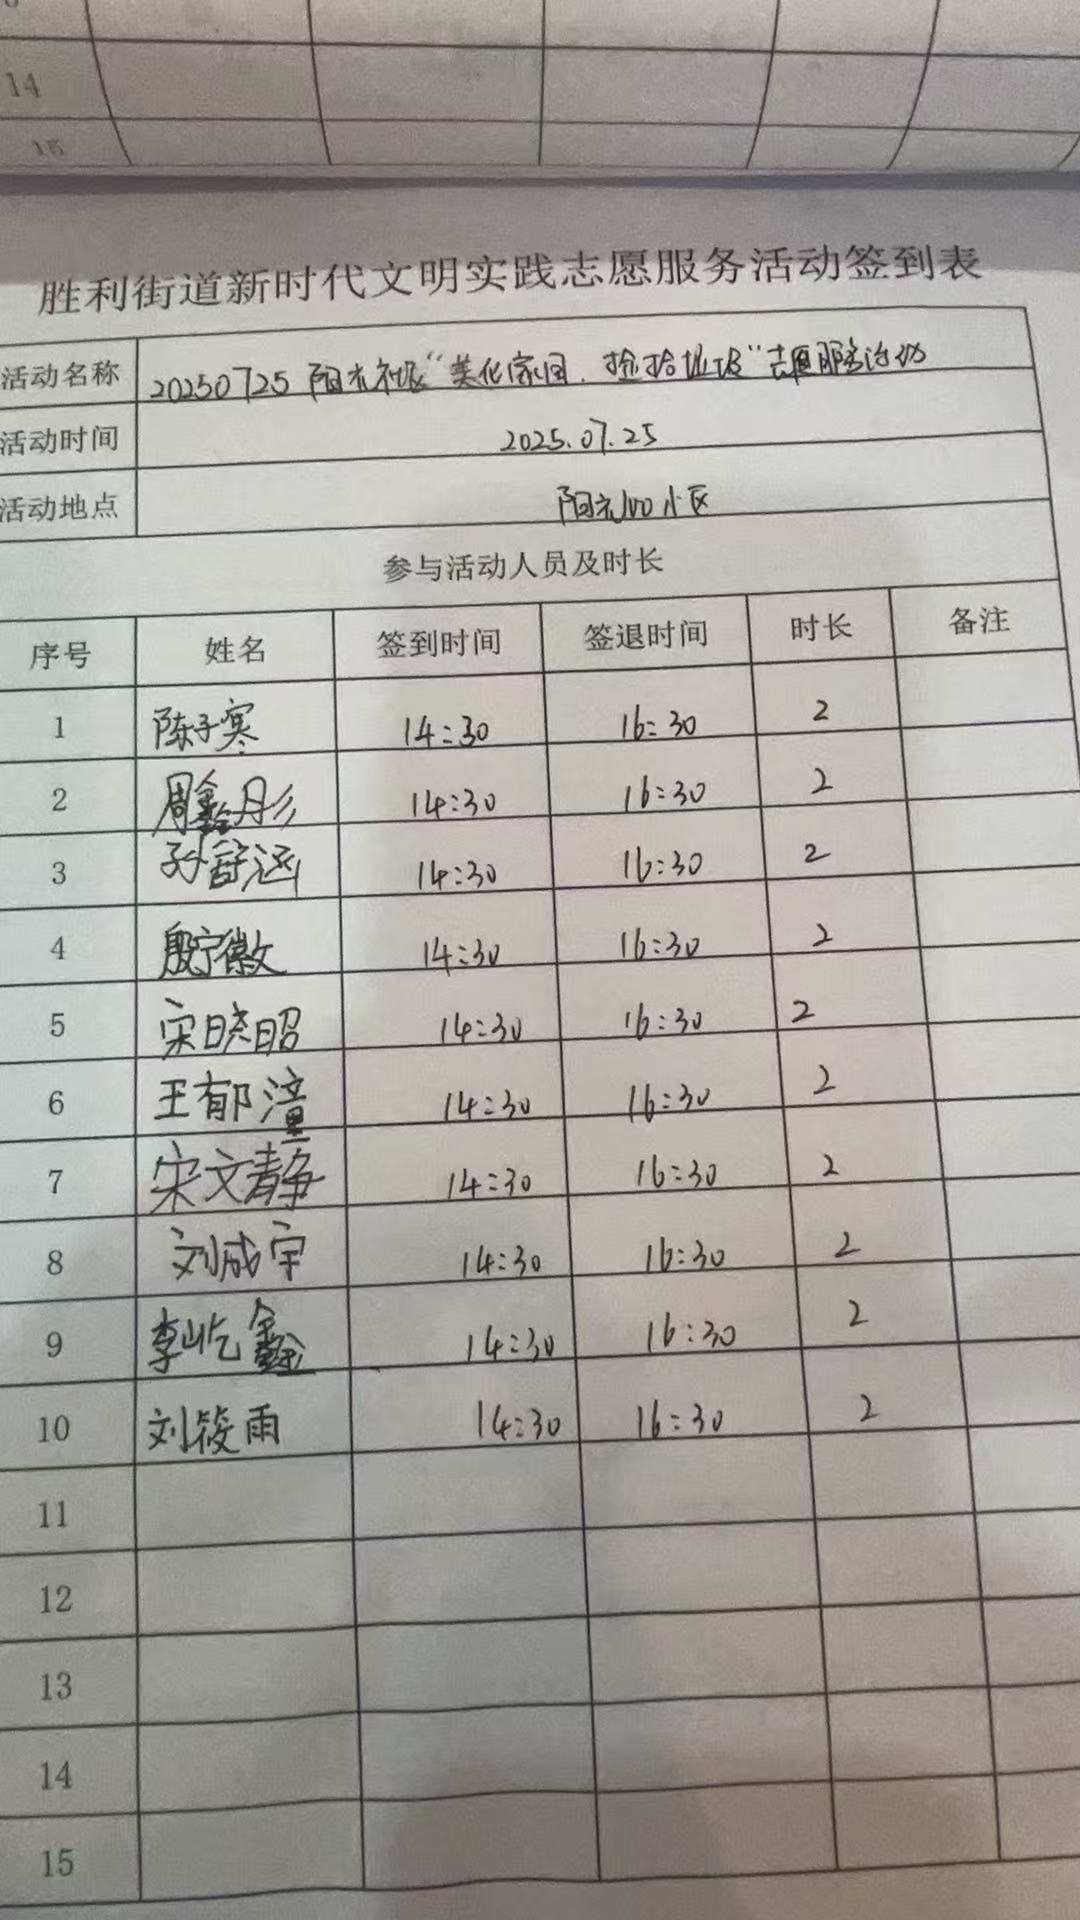 14
15
胜利街道新时代文明实践志愿服务活动签到表
活动名称 20250725 阳光社区“美化家园、捡拾垃圾”志愿服务活动
活动时间 2025.07.25
活动地点 阳光100小区
参与活动人员及时长
序号 姓名 签到时间 签退时间 时长 备注
1 陈子寒 14:30 16:30 2
2 周鑫彤 14:30 16:30 2
3 孙舒涵 14:30 16:30 2
4 殷宁徽 14:30 16:30 2
5 宋晓昭 14:30 16:30 2
6 王郁潼 14:30 16:30 2
7 宋文静 14:30 16:30 2
8 刘成宇 14:30 16:30 2
9 李屹鑫 14:30 16:30 2
10 刘筱雨 14:30 16:30 2
11
12
13
14
15